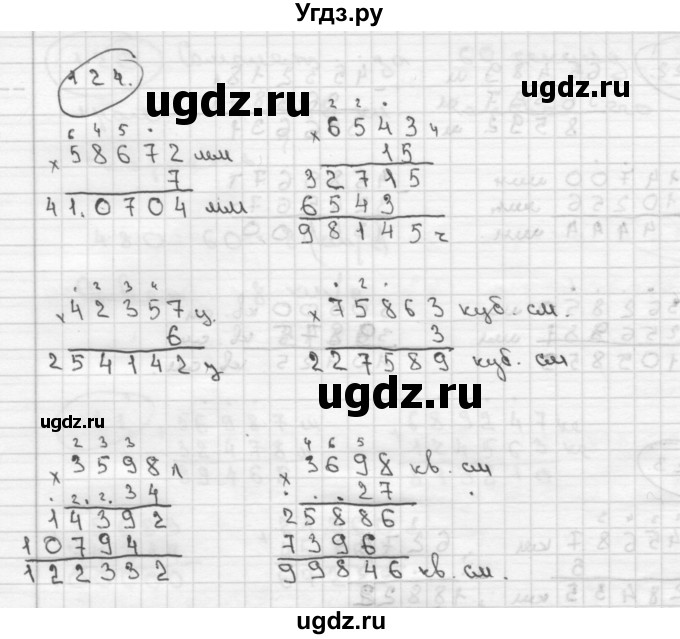 Угдз.ру
124.
ugdz.ru
ugdz.ru
6 4 5 .
× 58672 мм
7
41.0704 мм
2 2 .
× 6543 ч
15
32715
6543
98145 ч
. 2 3 4
× 42357 ц
6
254142 ц
. 2 .
× 75863 куб. см.
3
227589 куб. см
ugdz.ru
ugdz.ru
2 3 3
× 3598 л
. 2. 2. 34
14392
10794
122332
4 6 5
× 3698 кв. см
. . . 27 .
25886
7396
99846 кв. см.
ugdz.ru
ugdz.ru